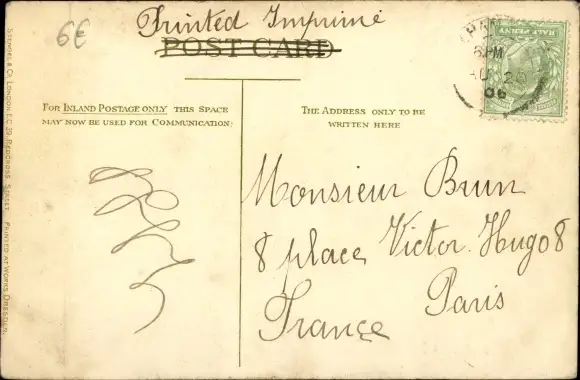 6€
Printed Imprimé
POST CARD
FOR INLAND POSTAGE ONLY THIS SPACE
MAY NOW BE USED FOR COMMUNICATION.
THE ADDRESS ONLY TO BE
WRITTEN HERE
HALFPENNY
6 PM
AU 25
06
Monsieur Brun
8 place Victor Hugo 8
Paris
France
STENGEL & Co., LONDON E.C. 39, REDCROSS STREET. PRINTED AT WORKS DRESDEN.